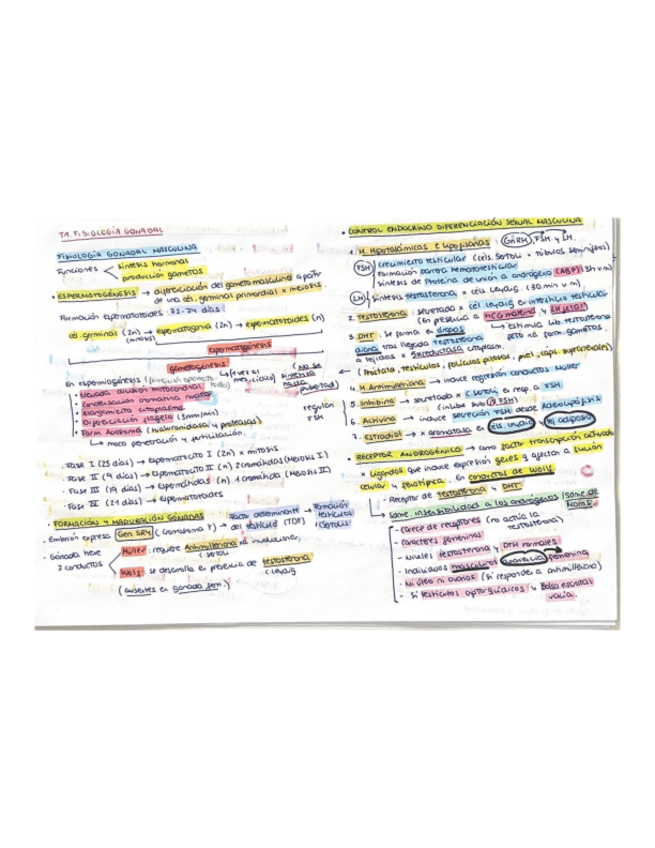 T1. FISIOLOGÍA GONADAL
FISIOLOGÍA GONADAL MASCULINA
Funciones < síntesis hormonal
producción gametos
• ESPERMATOGÉNESIS → diferenciación del gameto masculino a partir
de una cél. germinal primordial x meiosis.
Formación espermatozoides: 72-74 días
cél. germinal (2n) → espermatogonia (2n) → espermatozoides (n)
(mitosis)
espermatogénesis
gametogénesis
En espermiogénesis
• Elevada división mitocondrial
• Condensación cromatina nuclear
• Alargamiento citoplasma
• Diferenciación flagelo (3mm/min)
• Form. Acrosoma (hialuronidasa y proteasas)
↳ moco penetración y fertilización.
(No se sintetiza hasta pubertad)
regulan FSH
- Fase I (25 días) → Espermatocito I (2n) x mitosis
- Fase II (9 días) → Espermatocito II (n) 2 cromátidas (Meiosis I)
- Fase III (19 días) → Espermátidas (n) 1 cromátida (Meiosis II)
- Fase IV (21 días) → Espermatozoides
• FORMACIÓN Y MADURACIÓN GÓNADAS
- Embrión expresa Gen SRY (Cromosoma Y) → Factor determinante del testículo (TDF) → Formación testículos (Sertolis)
- Gónada tiene 2 conductos
Müller: requiere Antimülleriana xa involucionar
C. Sertoli
Wolf: se desarrolla en presencia de testosterona
C. Leydig
(ausentes en gónada fem.)
• CONTROL ENDOCRINO DIFERENCIACIÓN SEXUAL MASCULINA
1. H. Hipotalámicas e hipofisarias: GnRH, FSH y LH.
FSH Crecimiento testicular (céls. Sertoli x túbulos seminíferos)
Formación barrera hematotesticular
Síntesis de Proteína de unión a andrógeno (ABP)
LH síntesis testosterona x céls Leydig. (30 min v.m)
2. Testosterona: secretado x cél. Leydig en intersticio testicular
(en presencia de HCG materna y LH fetal)
3. DHT: se forma en órganos diana tras llegada testosterona
a tejidos x 5αreductasa citoplasm.
↳ estimula lib. testosterona
pero no form. gametos.
(Próstata, testículos, folículos pilosos, piel, caps. suprarrenales)
4. H. Antimülleriana → induce regresión conductos Müller
5. Inhibina → secretado x C. Sertoli en resp. a FSH
6. Activina → induce secreción FSH desde Adenohipófisis
7. Estradiol → x aromatasa en cél. Leydig y Tej. adiposo
• RECEPTOR ANDROGÉNICO → como factor transcripción activado
x ligandos que induce expresión genes y afecta a función
celular y fenotípica. En conductos de Wolf.
- Receptor de testosterona y DHT
↳ Sdme. insensibilidad a los andrógenos (Sdme de Morris)
- Carece de receptores (no actúa la testosterona)
- Caracteres femeninos
- Niveles testosterona y DTH normales
- Individuos masculinos apariencia femenina
- Ni útero ni ovarios (si responde a antimülleriana)
- Sí testículos criptorquídicos y Bolsa escrotal vacía.